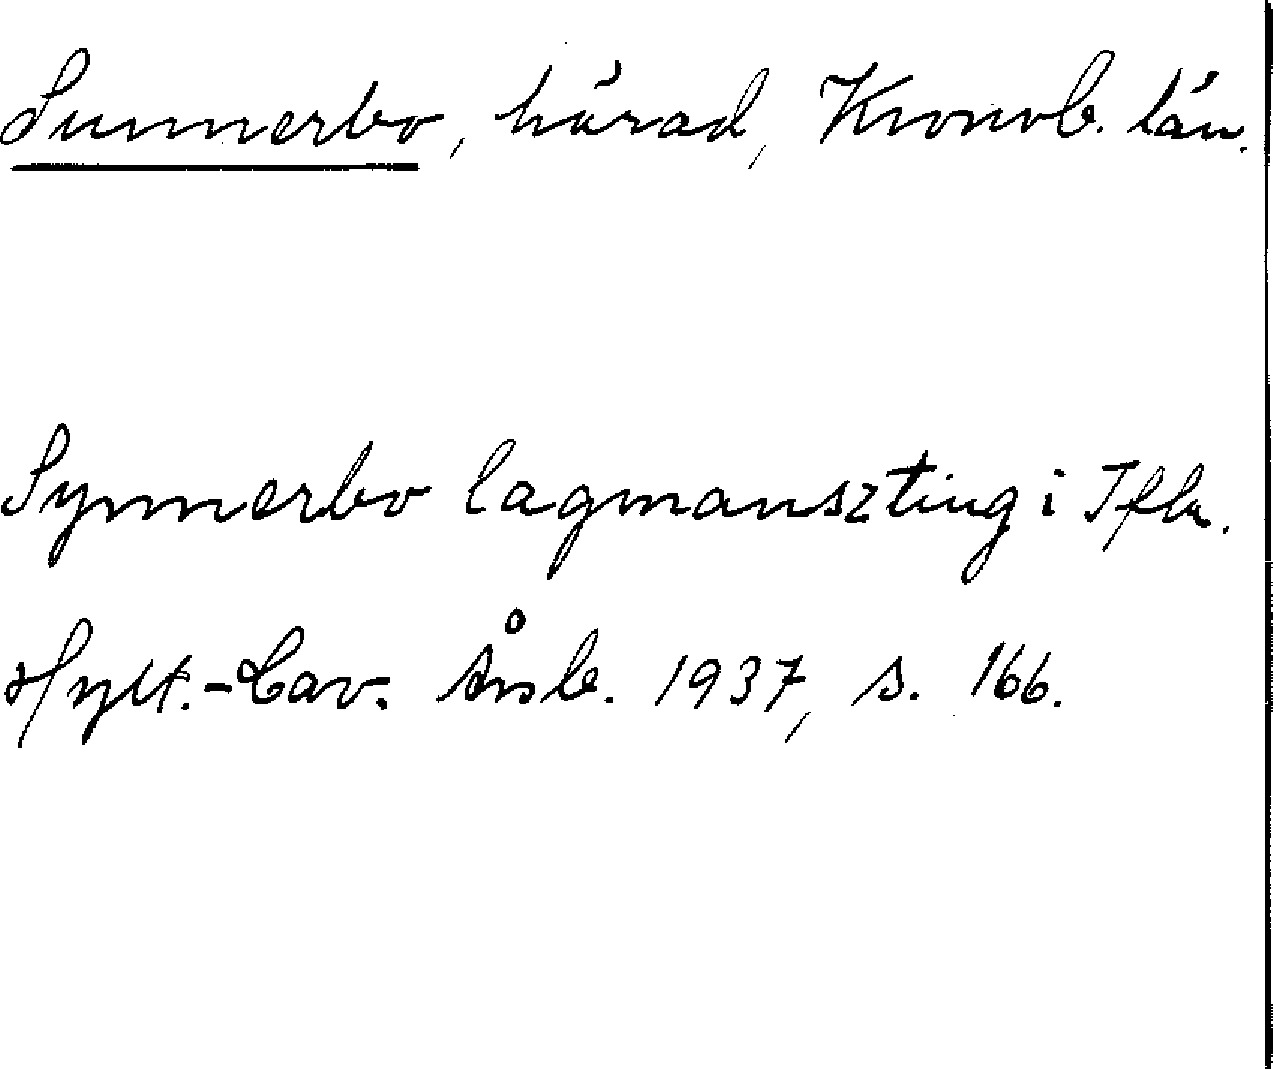 Sunnerbo, härad, Kronob. län.
Synnerbo lagmansszting i
Hylt.-Cav. Årsb. 1937, s. 166.